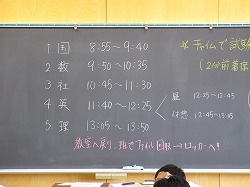 1. 国 8:55～9:40
☆チャイムで試験
2. 数 9:50～10:35
(2分前着席
3. 社 10:45～11:30
4. 英 11:40～12:25
昼 12:25～12:45
休憩 12:45～13:05
5. 理 13:05～13:50
教室へ戻り、
ファイル回収→ロッカーへ!